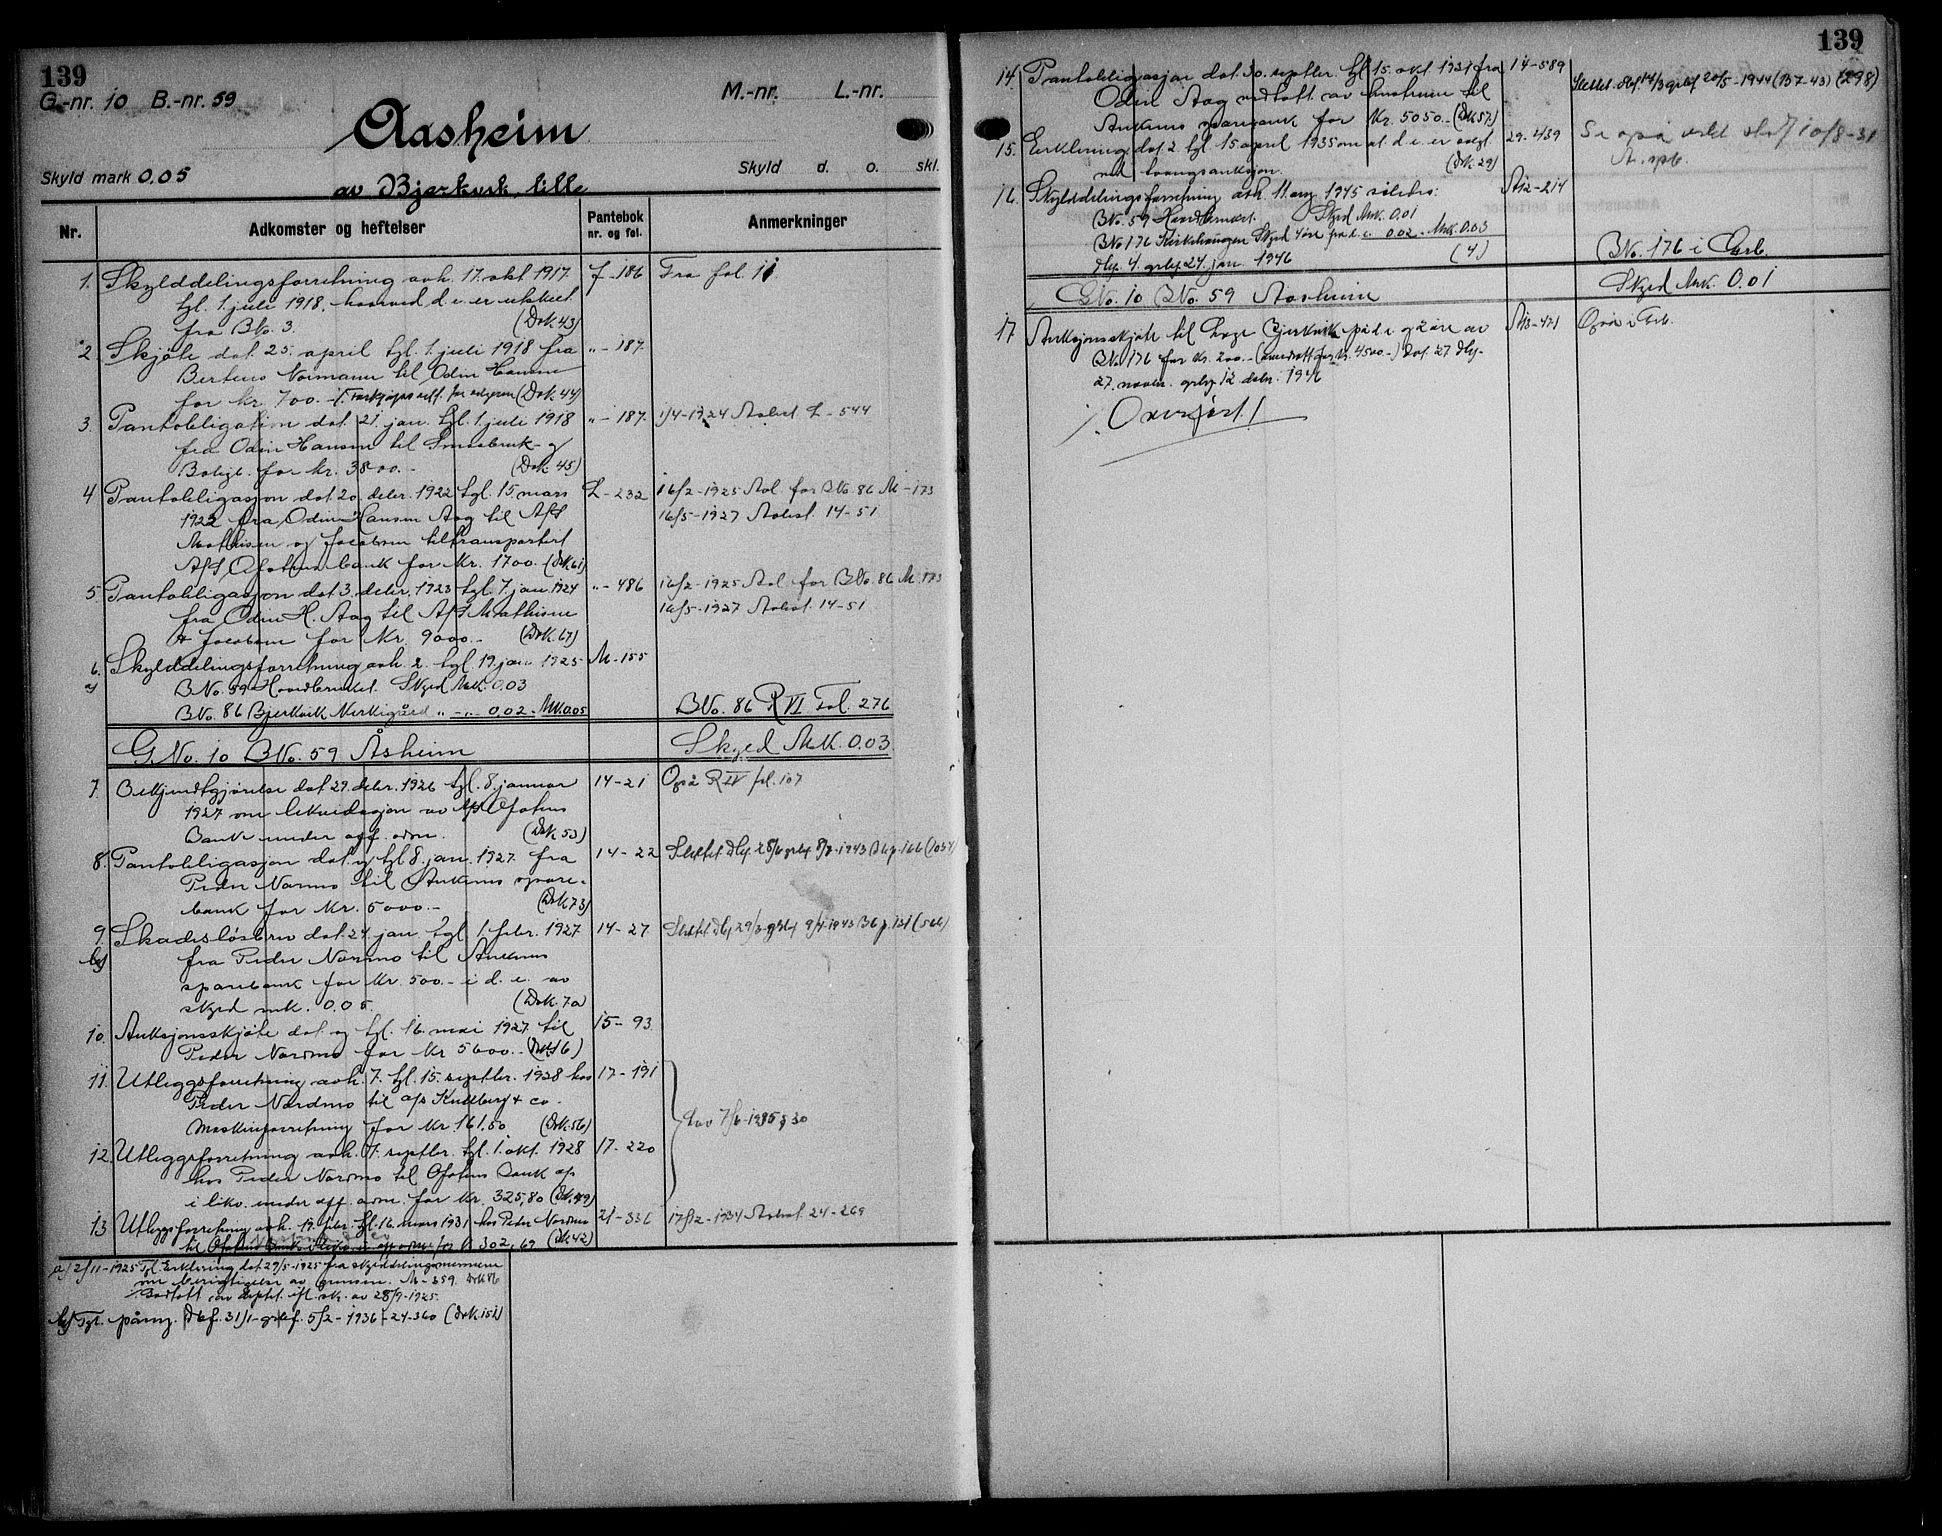 139
G.-nr. 10 B.-nr. 59
M.-nr. L.-nr.
Aasheim
Skyld mark 0,05
Skyld d. o. skl.
av Bjerkvik lille
Nr.
Adkomster og heftelser
Pantebok
nr. og fol.
Anmerkninger
1. Skylddelingsforretning avh. 17. okt 1917. J-186 Fra fol 11
tgl. 1. juli 1918, hvorved d. e. er utskilt
fra BNo. 3. (Dok. 43)
2. Skjøte dat. 25. april tgl. 1. juli 1918 fra "-187.
Berteus Normann til Odin Hansen
for kr. 700.- (Dok. 44)
3. Pantobligation dat. 21. jan. tgl. 1. juli 1918 "-187. 1/4-1924 Avlest L-544
fra Odin Hansen til Småbruk- og
Boligb. for kr. 3800.- (Dok. 45)
4 Pantobligasjon dat. 20. deser. 1922 tgl. 15. mars L-232 16/2-1925 Avl. for BNo. 86 M-173
1922 fra Odin Hansen Aag til A/S 16/5-1927 Avlest. 14-51
Mathisen og Jacobsen tiltransportert
A/S Ofotens bank for kr. 1700.- (Dok. 61)
5. Pantobligasjon dat. 3. deser. 1923 tgl. 7. jan. 1924 "-486 16/2-1925 Avl. for BNo. 86 M 173
fra Odin H. Aag til A/S Mathisen 16/5-1927 Avlest. 14-51
& Jacobsen for kr. 9000.- (Dok. 67)
6. Skylddelingsforretning avh. 2. tgl. 19. jan. 1925 M-155
a) BNo. 59 Hovedbruket. Skyld Mk. 0.03
BNo. 86 Bjerkvik Nerkigård "-"- 0.02 - Mk. 0.05 BNo. 86 R VI Fol. 276
G.No. 10 BNo. 59 Åsheim Skyld Mk. 0.03
7. Bekjendtgjørelse dat. 29. deser. 1926 tgl. 8. januar 14-21 Også R IV fol. 107
1927 om likvidasjon av A/S Ofotens
Bank under off. adm. (Dok 53)
8. Pantobligasjon dat. og tgl 8. jan. 1927. fra 14-22 Slettet Dbf 28/6 grbf 8/7-1943 B6 p. 166 (1037)
Peder Normo til Ankenes spare-
bank for kr. 5000.- (Dok. 73)
9. Skadesløsbrev dat. 24. jan. tgl. 1. febr. 1927 14-27 Slettet Dbf 29/3 grbf 9/4-1943 B6 p. 131
b) fra Peder Normo til Ankenes
sparebank for kr. 500.- i d. e. av
skyld mk. 0.05. (Dok. 7a)
10. Auksjonsskjøte dat. og tgl. 16. mai 1927. til 15-93
Peder Nordmo for kr 5600.- (Dok. 16)
11. Utleggsforretning avh. 7. tgl. 15. septbr. 1928 hos 17-191
Peder Nordmo til a/s Kullberg & co.
Maskinforretning for kr. 161.50 (Dok. 56) Lov 7/6-1935 § 30
12. Utleggsforretning avh. 7. septbr. tgl. 1. okt. 1928 17-220
hos Peder Nordmo til Ofotens Bank a/s
i likv. under off. adm. for kr. 325,80 (Dok. 49)
13 Utleggsforretning avh. 19. febr. tgl. 16. mars 1931 hos Peder Nordmo 21-336 17/12-1934 Avlest. 24-269
til Ofotens Bank i likv. u. off adm for kr 302,69 (Dok. 42)
a) 2/11-1925 Tgl. Erklæring dat. 29/5-1925 fra skylddelingsmennene
om berigtigelse av grensen. M-359. Dok 86
Bortfalt av depht. ifl. sk. av 28/9-1925.
b) Tgl. påny. Dbf. 31/1-grbf. 5/2-1936-24-360 (Dok 151)
139
14. Pantobligasjon dat. 30. septbr. tgl. 15. okt. 1931 fra 14-589 Slettet. dbf. 14/3 grbf 20/5-1944 (B7-43) (298)
Odin Aag vedtatt av hustruen til
Ankenes sparebank for kr. 5050.- (Dok 57.)
15. Erklæring dat. 2. tgl. 15 april 1935 om at d. e. er solgt 29-439 Se også 10/8-31
ved tvangsauksjon. (Dok. 29)
16. Skylddelingsforretning avh. 11 aug. 1945 således: A12-214
BNo. 59 Hovedbruket. Skyld Mrk. 0.01
BNo 176 Kirkehaugen Skyld 4 øre på d. e. 0.02 - Mrk. 0.03
dbf. 4. grbf 24. jan. 1946 (4) BNo. 176 i Grb.
GNo. 10 BNo. 59 Aasheim Skyld Mrk. 0.01
17 Auksjonsskjøte til Inge Bjerkvik på d. e. og 2 øre av A13-471 Også i Grb.
BNo 176 for kr. 200.- (kr. 4500.-) Dat. 27. dbf.
27. novbr. grbf 12 desbr. 1946
Overført!